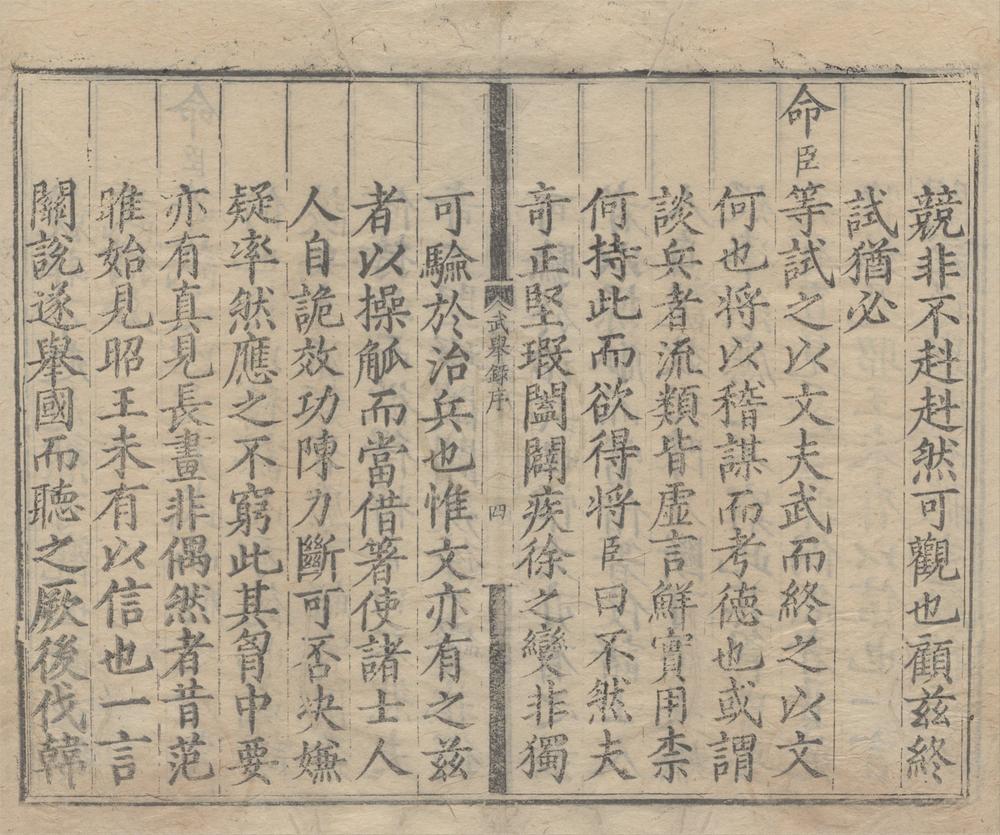 競非不赳赳然可觀也顧茲終
試猶必
命臣等試之以文夫武而終之以文
何也将以稽謀而考德也或謂
談兵者流類皆虛言鮮實用柰
何持此而欲得将臣曰不然夫
竒正堅瑕闔闢疾徐之變非獨
武舉錄序 四
可驗於治兵也惟文亦有之茲
者以操觚而當借箸使諸士人
人自詭效功陳力斷可否决嫌
疑率然應之不窮此其胷中要
亦有真見長畫非偶然者昔范
雎始見昭王未有以信也一言
關說遂舉國而聽之厥後伐韓